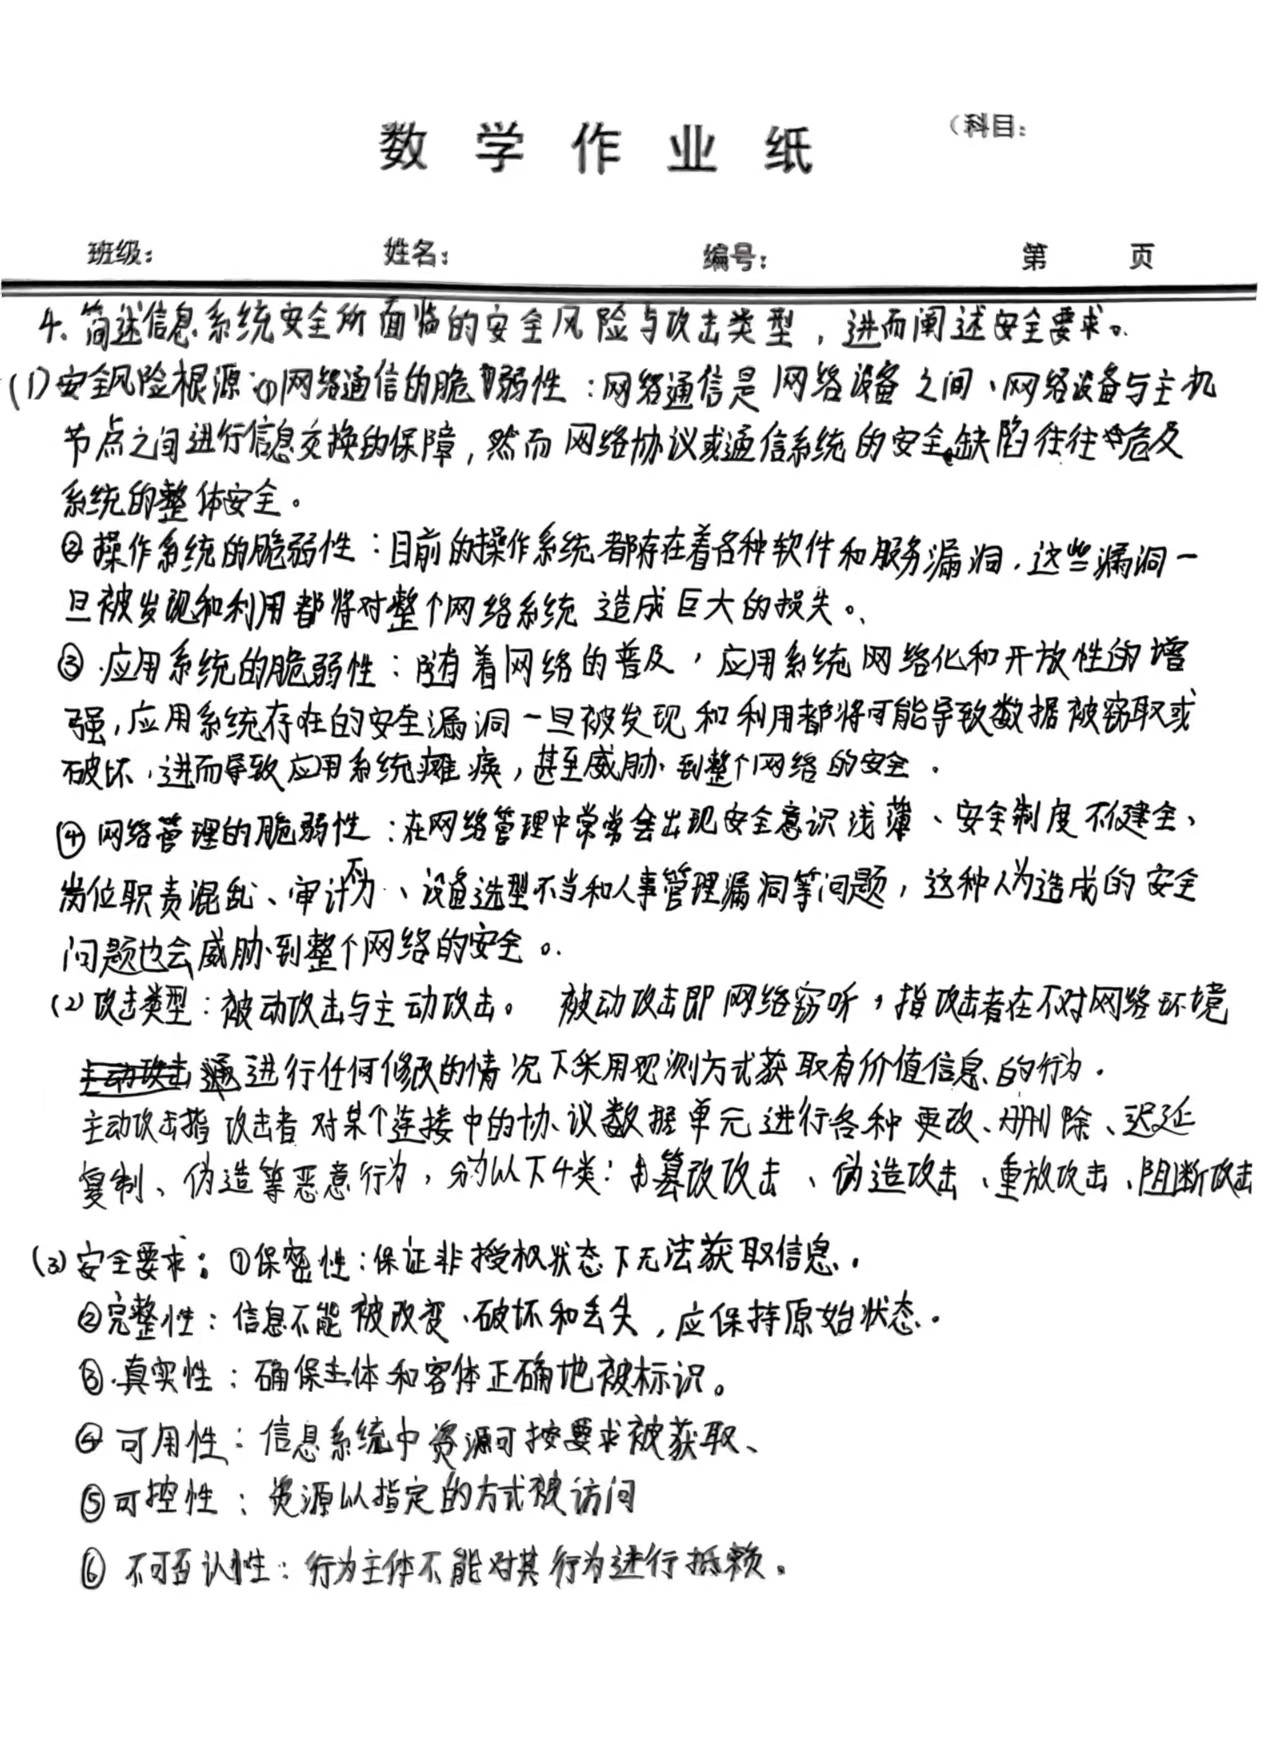 数学作业纸
（科目：
班级： 姓名： 编号： 第 页
4、简述信息系统安全所面临的安全风险与攻击类型，进而阐述安全要求。
(1)安全风险根源：①网络通信的脆弱性：网络通信是网络设备之间、网络设备与主机
节点之间进行信息交换的保障，然而网络协议或通信系统的安全缺陷往往危及
系统的整体安全。
②操作系统的脆弱性：目前的操作系统都存在着各种软件和服务漏洞，这些漏洞一
旦被发现和利用都将对整个网络系统造成巨大的损失。
③应用系统的脆弱性：随着网络的普及，应用系统网络化和开放性的增
强，应用系统存在的安全漏洞一旦被发现和利用都将可能导致数据被窃取或
破坏，进而导致应用系统瘫痪，甚至威胁到整个网络的安全．
④网络管理的脆弱性：在网络管理中常常会出现安全意识浅薄、安全制度不健全、
岗位职责混乱、审计不力、设备选型不当和人事管理漏洞等问题，这种人为造成的安全
问题也会威胁到整个网络的安全。
(2)攻击类型：被动攻击与主动攻击。 被动攻击即网络窃听，指攻击者在不对网络环境
进行任何修改的情况下采用观测方式获取有价值信息的行为．
主动攻击指攻击者对某个连接中的协议数据单元进行各种更改、删除、迟延
复制、伪造等恶意行为，分为以下4类：篡改攻击、伪造攻击、重放攻击、阻断攻击
(3)安全要求：①保密性：保证非授权状态下无法获取信息．
②完整性：信息不能被改变、破坏和丢失，应保持原始状态．
③真实性：确保主体和客体正确地被标识。
④可用性：信息系统中资源可按要求被获取、
⑤可控性：资源以指定的方式被访问
⑥不可否认性：行为主体不能对其行为进行抵赖．